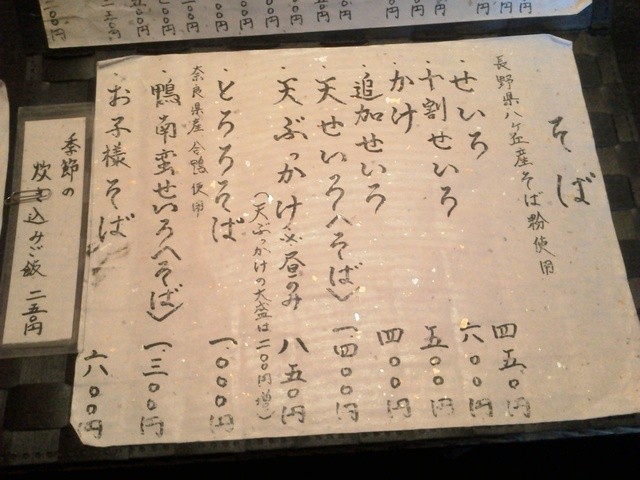 そば
長野県八ヶ丘産そば粉使用
・せいろ 四五〇円
・十割せいろ 六〇〇円
・かけ 五〇〇円
・追加せいろ 四〇〇円
・天せいろ〈そば〉 一、四〇〇円
・天ぶっかけ※昼のみ 八五〇円
(天ぶっかけの大盛は二〇〇円増)
・とろろそば 一、〇〇〇円
奈良県産合鴨使用
・鴨南蛮せいろ〈そば〉 一、三〇〇円
・お子様そば 六〇〇円
季節の
炊き込みご飯 二五〇円